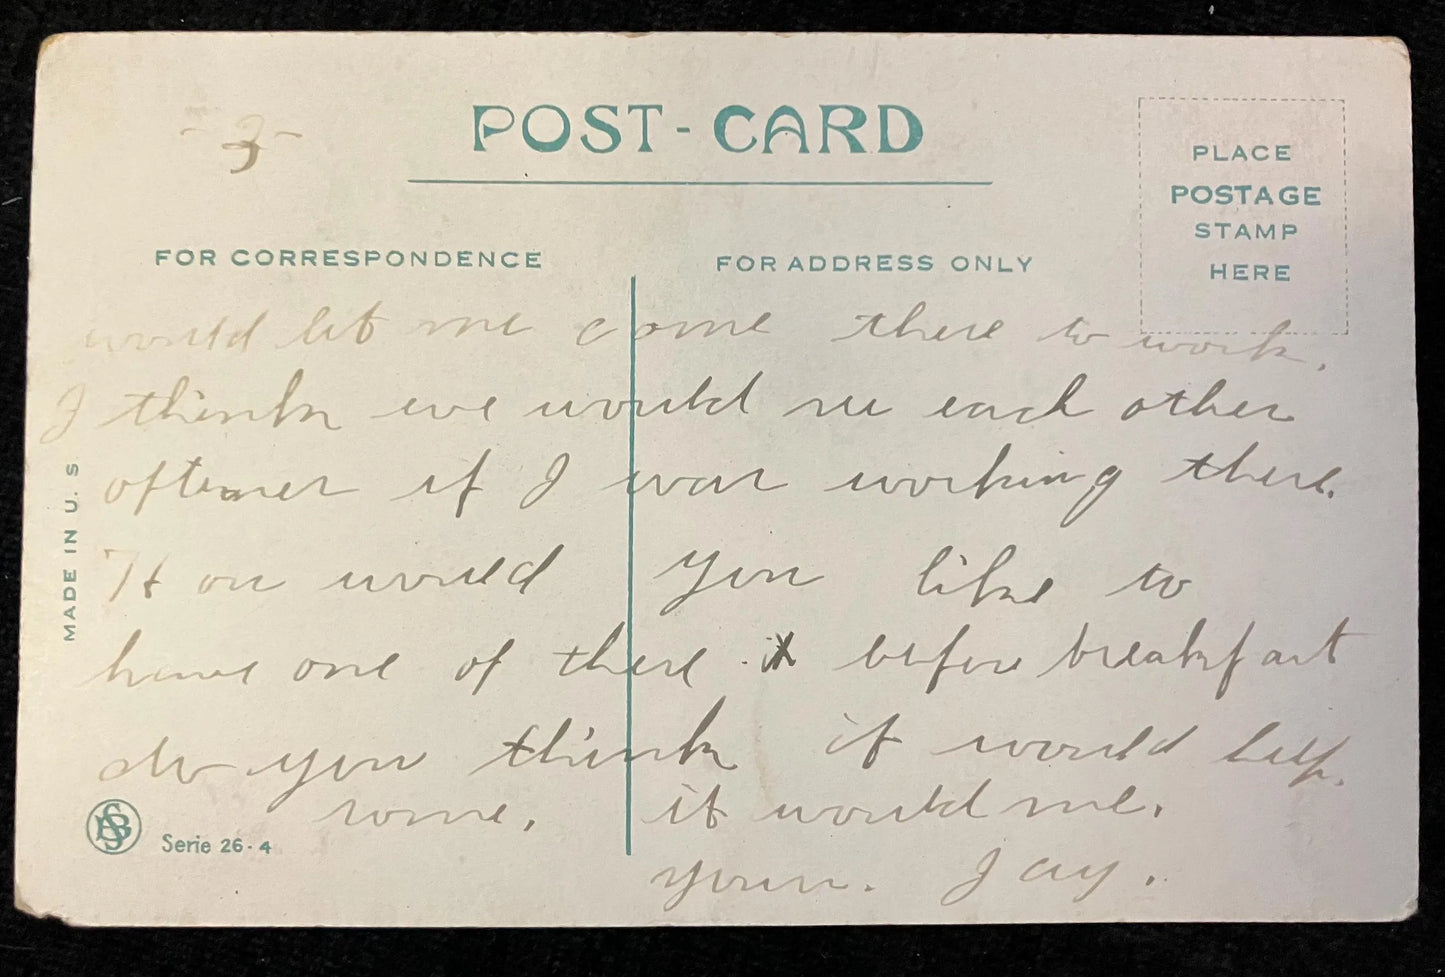 - 3 -
POST-CARD
PLACE
POSTAGE
STAMP
HERE
FOR CORRESPONDENCE
FOR ADDRESS ONLY
would let me come there to work.
I think we would see each other
oftener if I was working there.
How would you like to
have one of these before breakfast
do you think it would help.
some. it would me.
yours. Jay.
MADE IN U. S
Serie 26-4